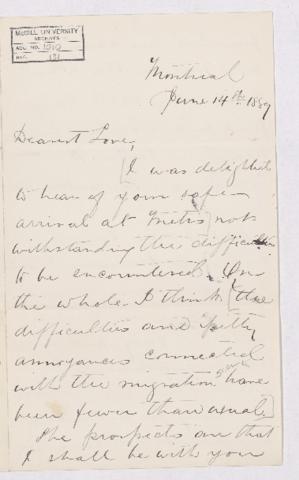 McGILL UNIVERSITY
ARCHIVES
ACC. NO. 1010
REF. 131
Montreal
June 14th 1889
Dearest Love,
[I was delighted
to hear of your safe
arrival at Metis] not
withstanding the difficulties
to be encountered. On
the whole I think [the
difficulties and petty
annoyances connected
with the migration have
been fewer than usual.]
The prospects are that
I shall be with you